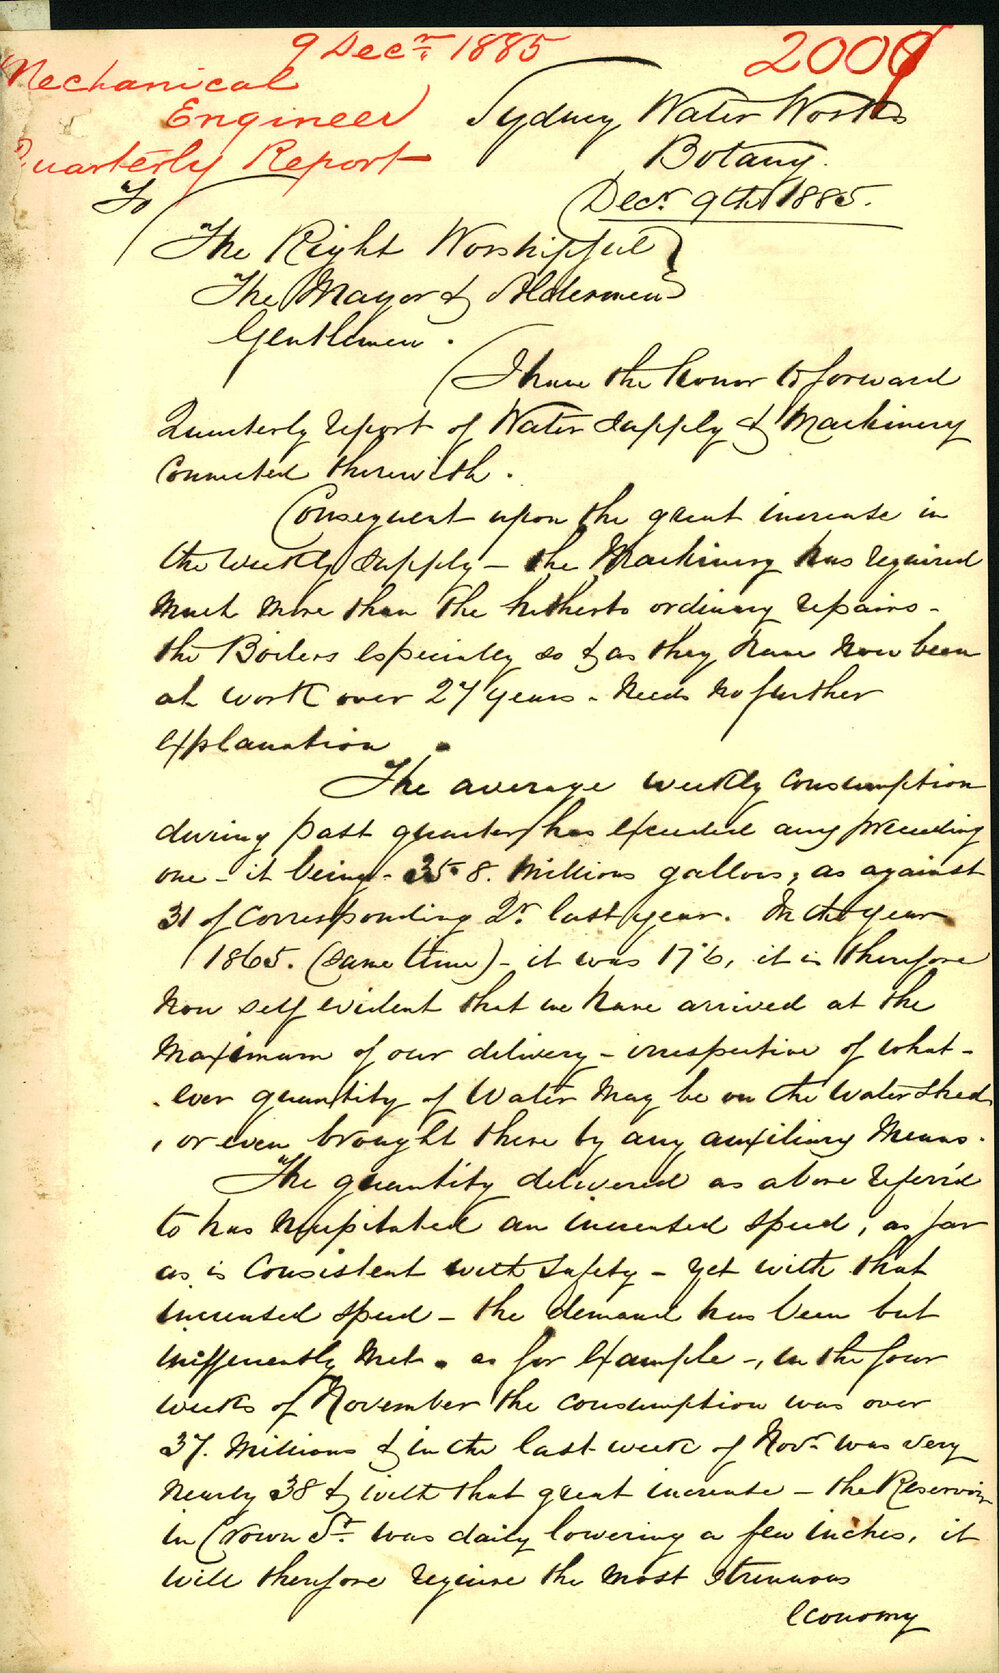 9 Decr. 1885
2009
Mechanical
Engineer
Quarterly Report
Sydney Water Works
Botany.
Decr. 9th 1885.
To
The Right Worshipful
The Mayor & Aldermen
Gentlemen.
I have the honor to forward
Quarterly report of Water Supply & Machinery
Connected therewith.
Consequent upon the great increase in
the weekly supply – the Machinery has required
much more than the hitherto ordinary repairs –
the Boilers especially so & as they have now been
at work over 27 years – needs no further
explanation.
The average weekly consumption
during past quarter has exceeded any preceding
one – it being – 35.8. Millions gallons, as against
31 of corresponding Qr. last year. In the year
1865. (same time) – it was 17.6, it is therefore
now self evident that we have arrived at the
Maximum of our delivery – irrespective of what-
-ever quantity of Water may be on the Watershed
, or even brought there by any auxiliary Means.
The quantity delivered as above referr'd
to has necessitated an increased speed, as far
as is Consistent with safety – yet with that
increased speed – the demand has been but
inefficiently met. as for Example –, in the four
weeks of November the consumption was over
37. Millions & in the last week of Novr. was very
nearly 38 & with that great increase – the Reservoir
in Crown St. was daily lowering a few inches, it
will therefore require the most strenuous
economy